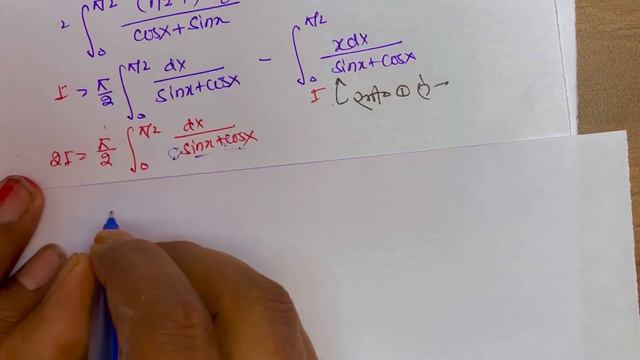 = ∫₀^π/2 / cosx + sinx
I = π/2 ∫₀^π/2 dx / sinx + cosx - ∫₀^π/2 x dx / sinx + cosx
I ①
2I = π/2 ∫₀^π/2 dx / sinx + cosx